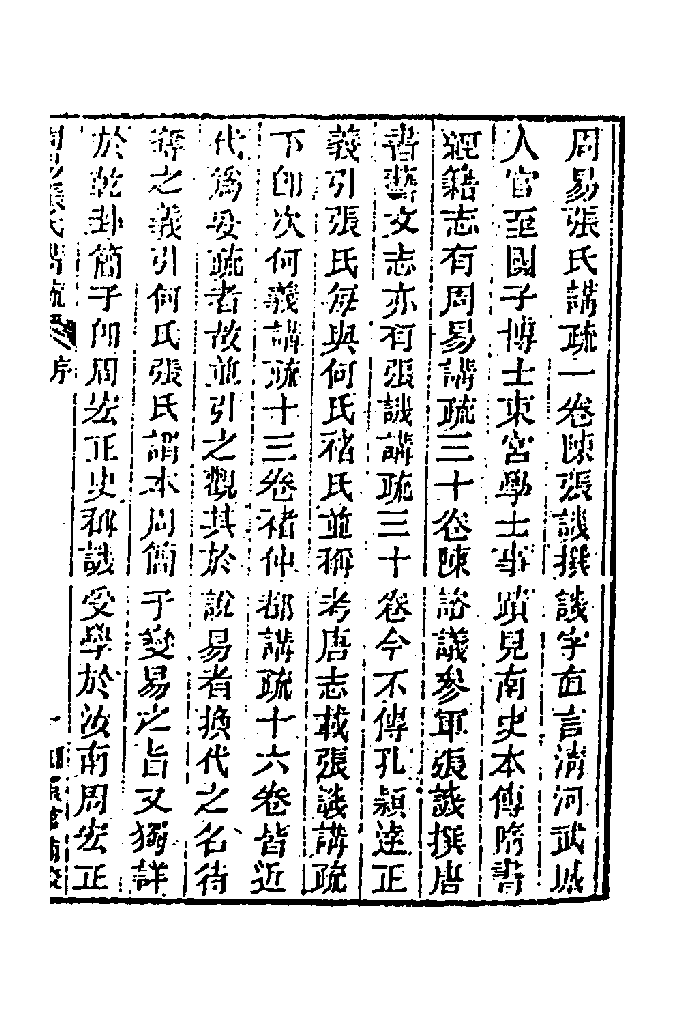 周易張氏講疏一卷陳張譏撰譏字直言淸河武城
人官至國子博士東宮學士事蹟見南史本傳隋書
經籍志有周易講疏三十卷陳諮議參軍張譏撰唐
書藝文志亦有張譏講疏三十卷今不傳孔穎達正
義引張氏每與何氏褚氏並稱考唐志載張譏講疏
下卽次何義講疏十三卷褚仲都講疏十六卷皆近
代爲疏者故並引之觀其於說易者換代之名待
之義引何氏張氏謂本周簡子變易之旨又獨詳
於乾卦簡子卽周宏正史稱譏受學於汝南周宏正
周易張氏講疏 序